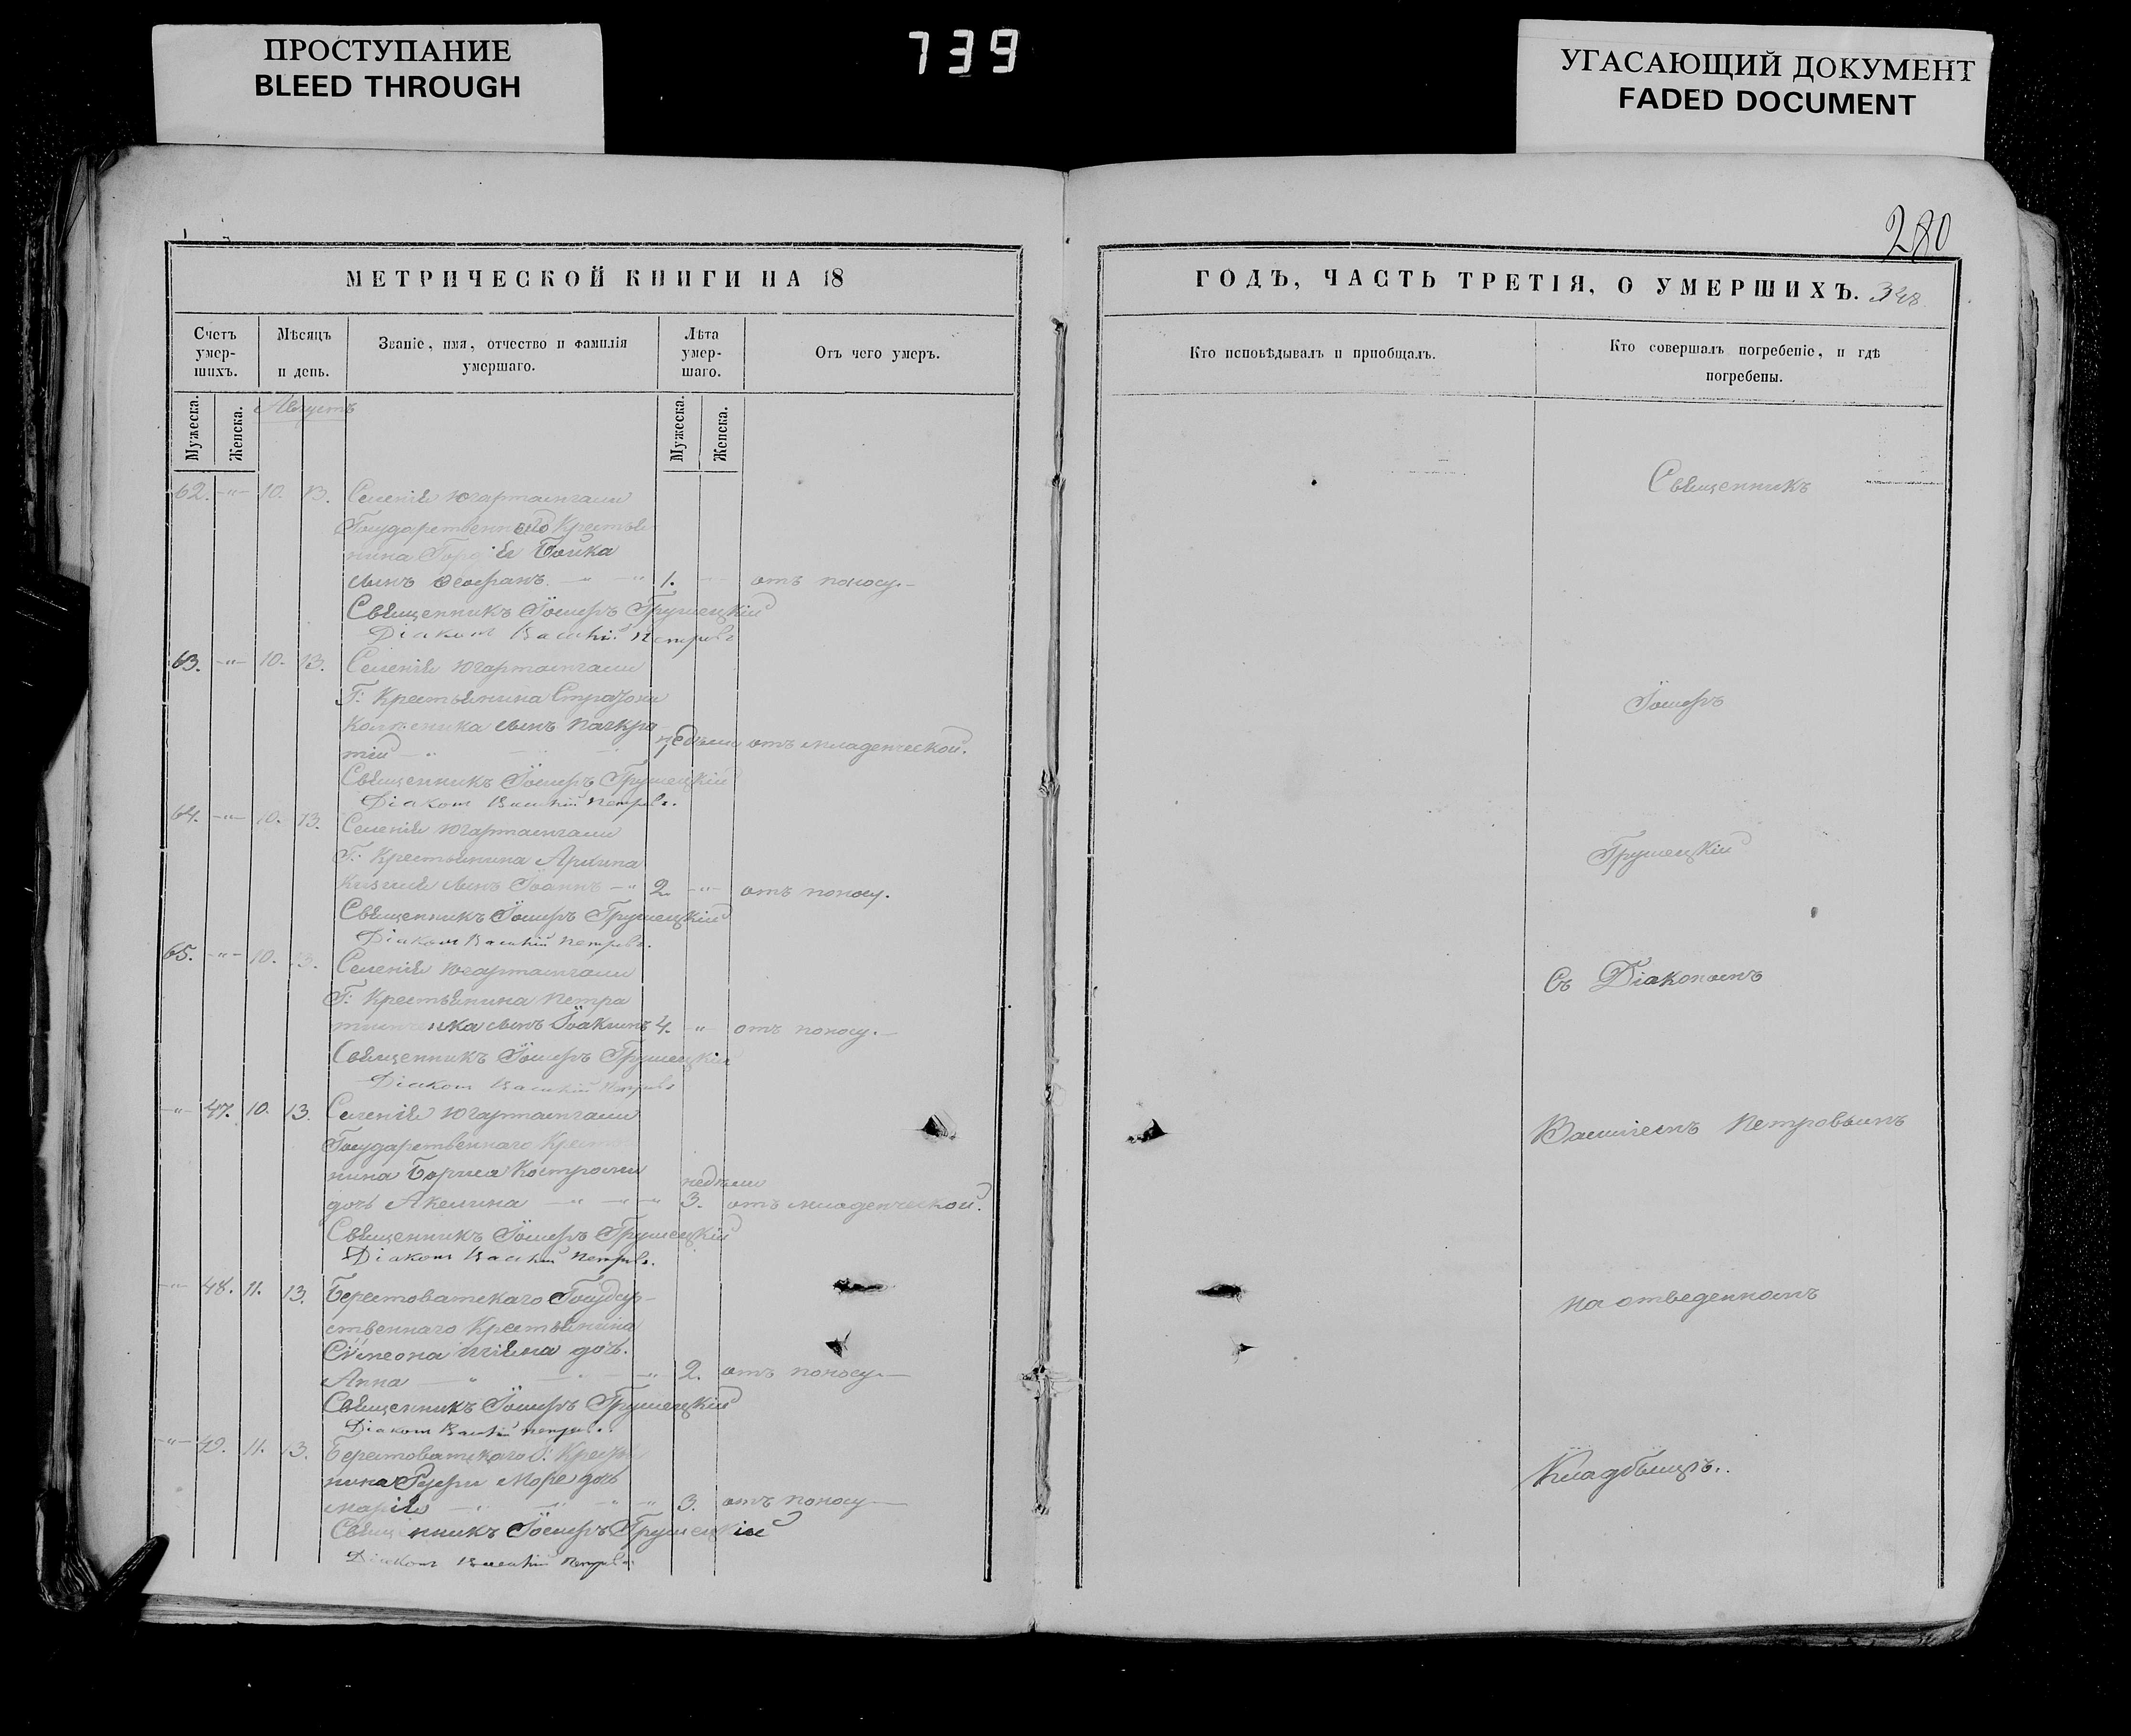 ПРОСТУПАНИЕ
BLEED THROUGH
739
УГАСАЮЩИЙ ДОКУМЕНТ
FADED DOCUMENT
280
МЕТРИЧЕСКОЙ КНИГИ НА 18
ГОДЪ, ЧАСТЬ ТРЕТІЯ, О УМЕРШИХЪ. 348
Счетъ умер-шихъ.
Мѣсяцъ и день.
Званіе, имя, отчество и фамилія умершаго.
Лѣта умер-шаго.
Отъ чего умеръ.
Кто исповѣдывалъ и пріобщалъ.
Кто совершалъ погребеніе, и гдѣ
погребены.
Мужеска. Женска.
Августъ
Мужеска. Женска.
62. -"- 10. 13. Селенія
Государственнаго Крестья
нина Бойка
сынъ 1. отъ поносу.-
Священникъ Іосифъ Грушецкій
Діаконъ Василій Петровъ
63. -"- 10. 13. Селенія
Г: Крестьянина
сынъ Панкра
тій -"- недѣли отъ младенческой.
Священникъ Іосифъ Грушецкій
Діаконъ Василій Петровъ.
64. -"- 10. 13. Селенія
Г: Крестьянина
сынъ Іоаннъ -"- 2. -"- отъ поносу.
Священникъ Іосифъ Грушецкій
Діаконъ Василій Петровъ.
65. -"- 10. 13. Селенія
Г: Крестьянина Петра
сынъ Іоакимъ 4. -"- отъ поносу.-
Священникъ Іосифъ Грушецкій
Діаконъ Василій Петровъ
-"- 47. 10. 13. Селенія
Государственнаго Крестья
нина Бориса недѣли
дочь Акелина -"- -"- 3. отъ младенческой.
Священникъ Іосифъ Грушецкій
Діаконъ Василій Петровъ.
-"- 48. 11. 13. Берестоватскаго Государ-
ственнаго Крестьянина
Сѵмеона дочь
Анна -"- -"- 2. отъ поносу.-
Священникъ Іосифъ Грушецкій
Діаконъ Василій Петровъ.
-"- 49. 11. 13. Берестоватскаго Г: Крестья
нина дочь
Марія -"- -"- 3. отъ поносу-
Священникъ Іосифъ Грушецкій
Діаконъ Василій Петровъ
Священникъ
Іосифъ
Грушецкій
Съ Діакономъ
Василіемъ Петровымъ
на отведенномъ
Кладбищѣ.